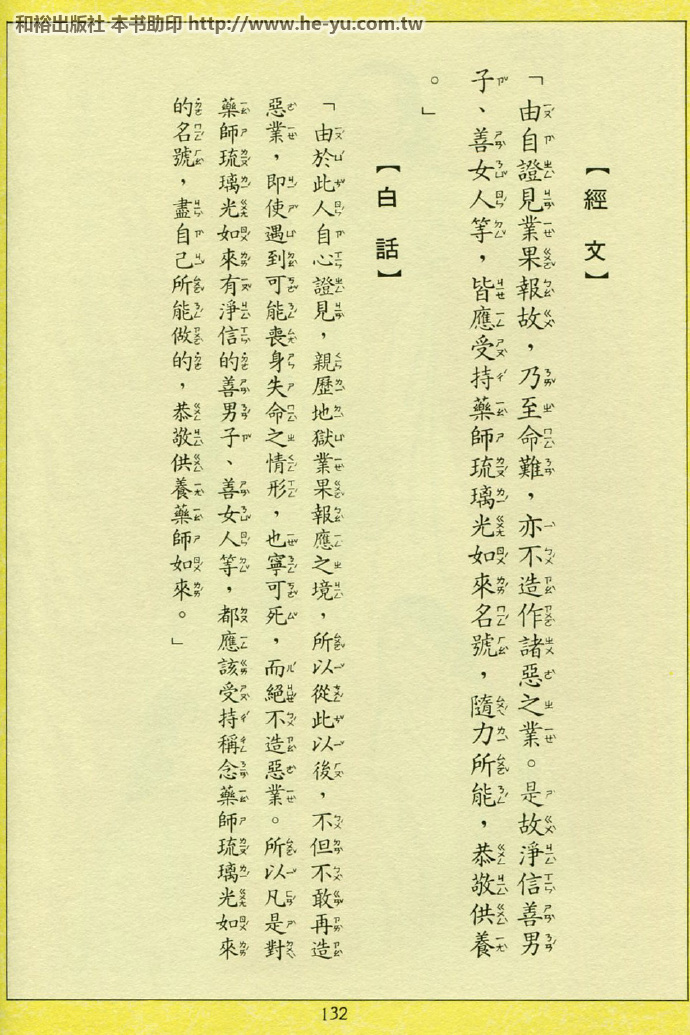 和裕出版社 本书助印 http://www.he-yu.com.tw
【經文】
「由自證見業果報故，乃至命難，亦不造作諸惡之業。是故淨信善男
子、善女人等，皆應受持藥師琉璃光如來名號，隨力所能，恭敬供養
。」
【白話】
「由於此人自心證見，親歷地獄業果報應之境，所以從此以後，不但不敢再造
惡業，即使遇到可能喪身失命之情形，也寧可死，而絕不造惡業。所以凡是對
藥師琉璃光如來有淨信的善男子、善女人等，都應該受持稱念藥師琉璃光如來
的名號，盡自己所能做的，恭敬供養藥師如來。」
132